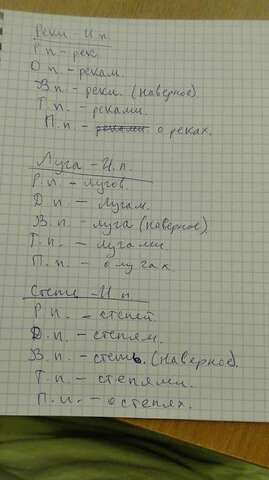 Реки - И п
Р. п - рек
Д п. - рекам.
В п. - реки. (наверное).
Т. п. - реками.
П. п. - реками о реках.
Луга - И. п.
Р. п. - лугов.
Д. п. - лугам.
В. п. - луга (наверное).
Т. п. - лугами
П. п. - о лугах.
Степь - И п
Р. п. - степей
Д. п. - степям.
В п. - степь. (наверное).
Т п. - степями.
П. п. - о степях.